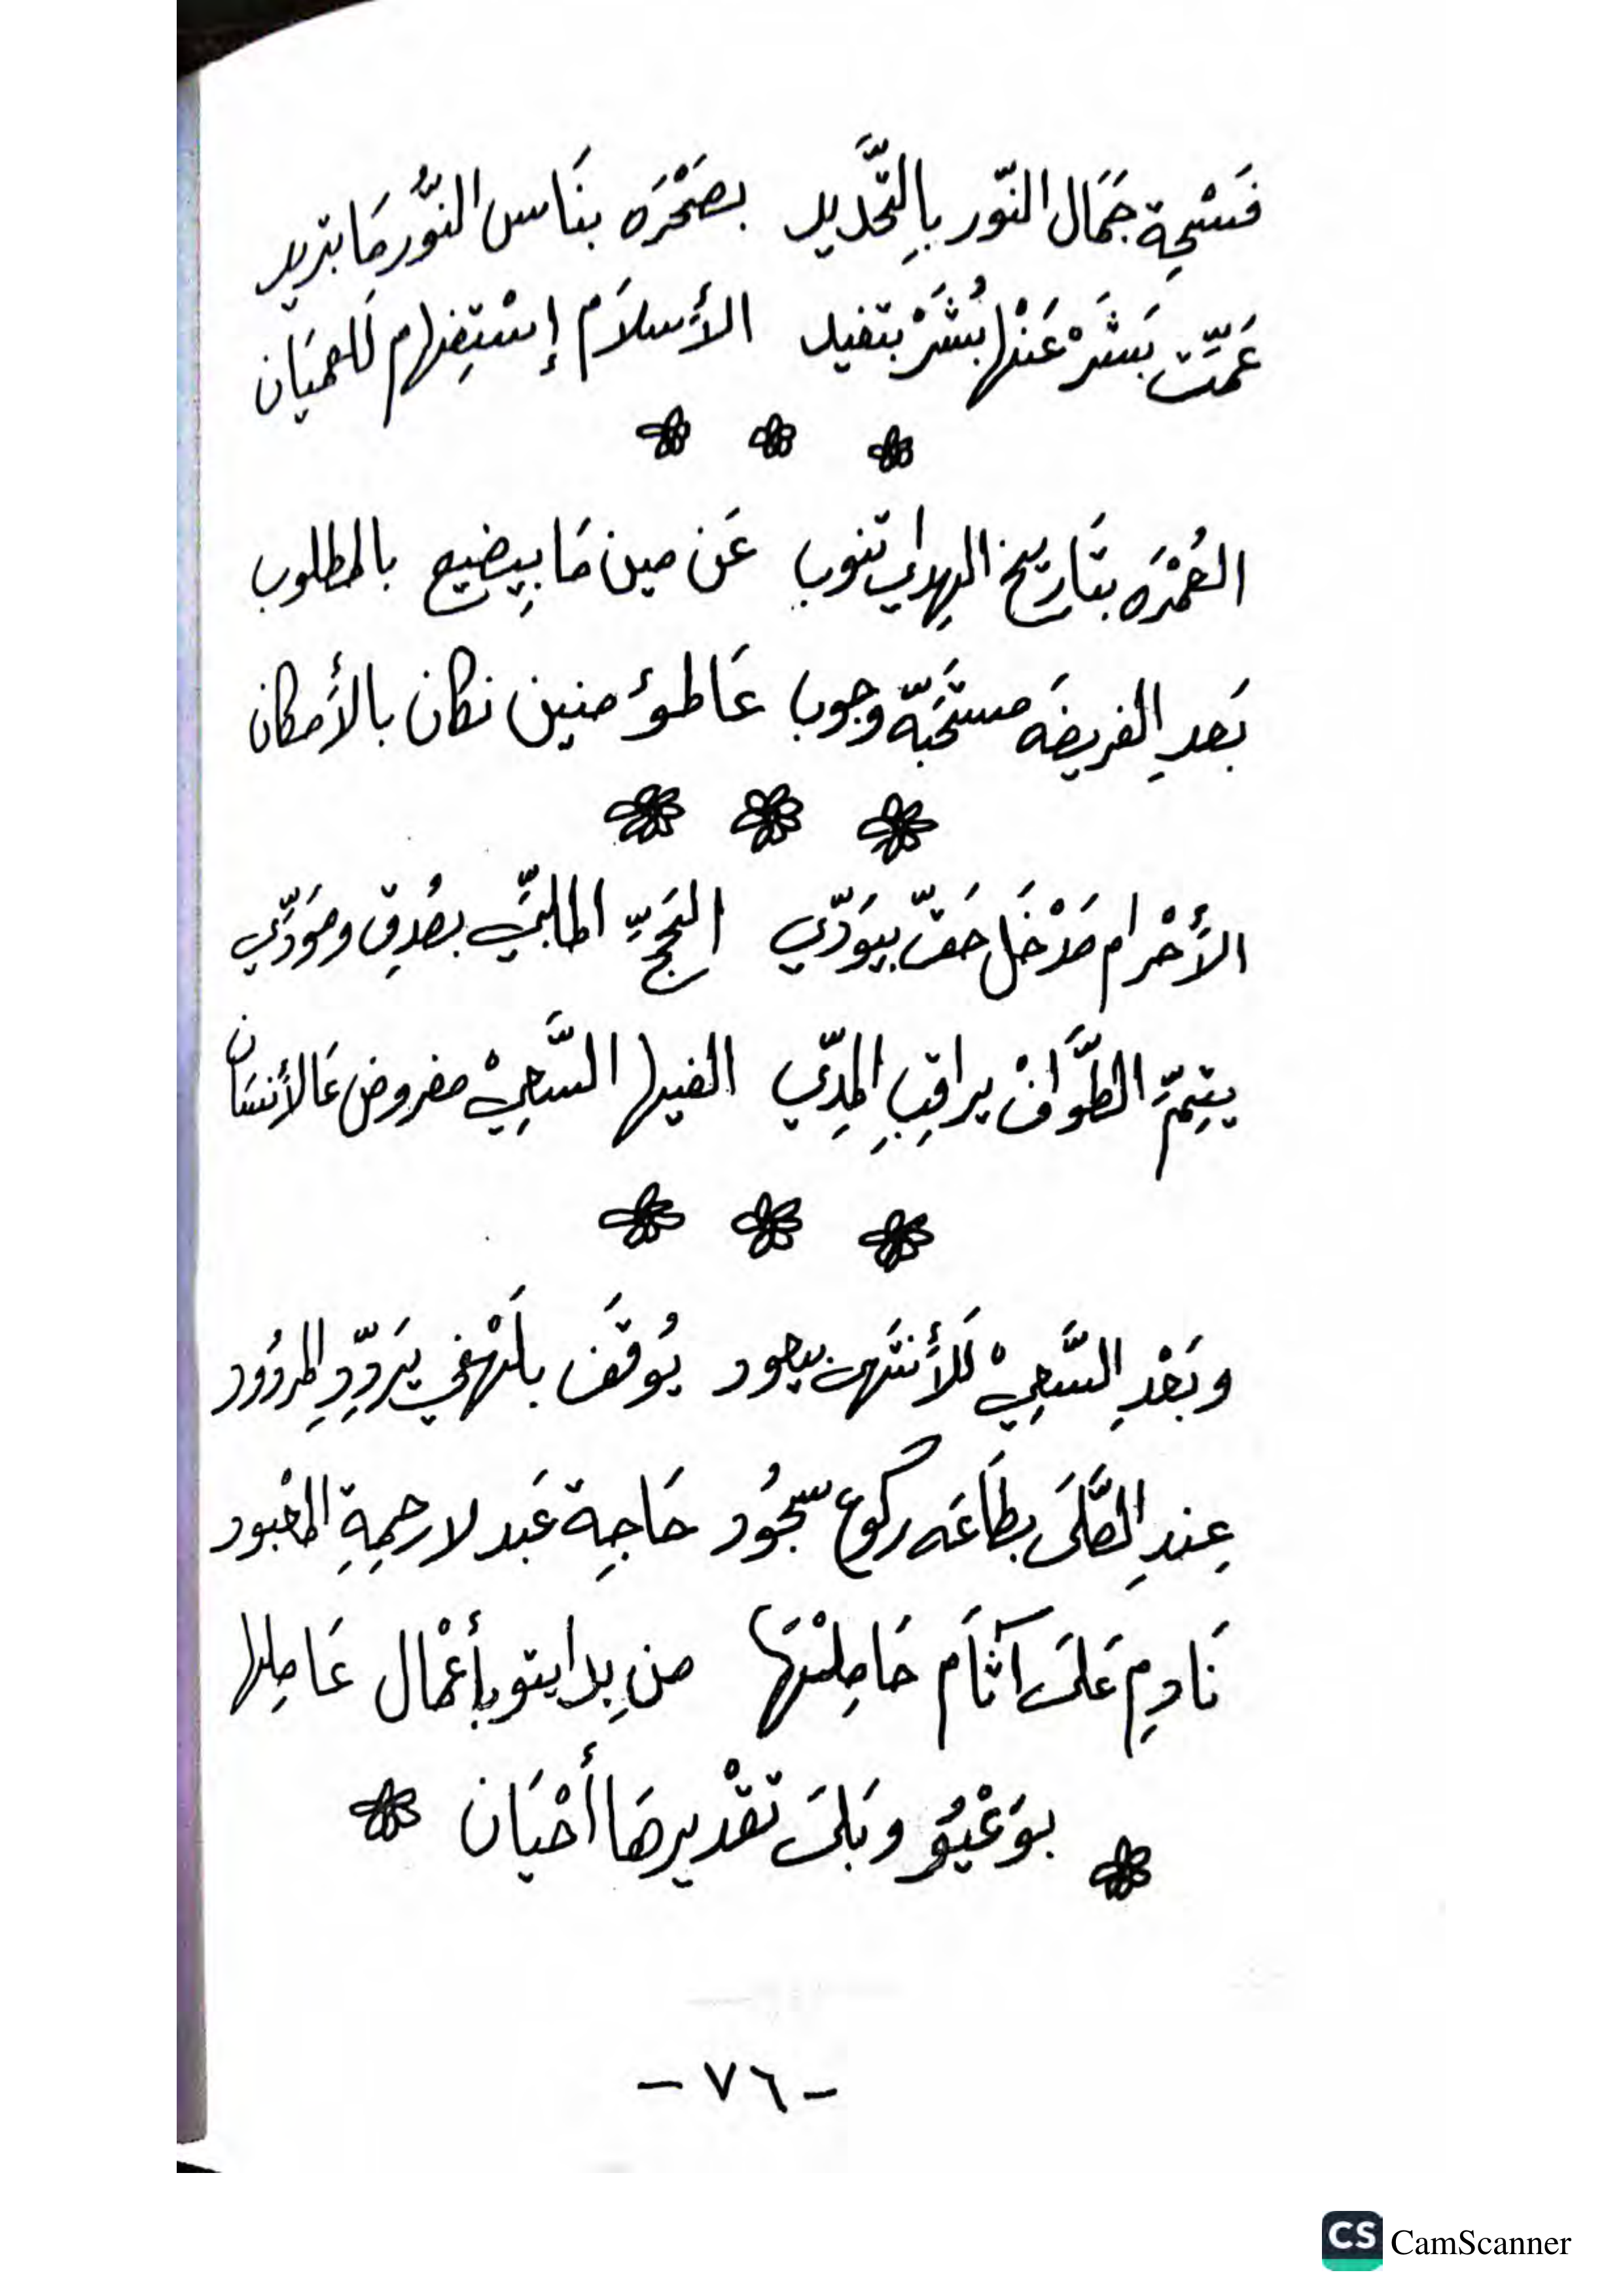 فَسْحِة جَمَال النّور بِالتَّحْديد بصَخْرَه بنَاس النَّوُر مَا بتريد
عَمِّت بَشَرْ عَنْها بُشَرْ بتفيد الأسلاَم إسْتِفهام لَلعميَان
العُمْرَه بتَاريخ الهِداي تنوب عَن مين مَا بِيضيع بالمطلوب
بَعدِ الفريضَه مستحَبّه وجوب عَاطوﺉ منين نكان بالأَمكان
الأَحْرام مَدْخَل حَقّ بيَودّي الحَجِّ الملبّي بصُدِق ومَودّي
يتِمّ الطَّوَافْ يراقِبِ المِدّي الفيها السَّعِيْ مفروض عَالأنسَان
وبَعْدِ السَّعِيْ لَلأنتَهى بيعود يُوقَف بلَهْفِي يرَدِّدِ المردُود
عِندِ الصَّلَى بطَاعَه ركوع سجُود حَاجِة عَبد لارحمِةِ المعْبود
نَادِم عَلَى آثَام حَامِلْتهَا من بِدايتو بأعْمال عَامِلها
بوَعْيُو وبَلَى تقْديرهَا أحْيَان
- ٧٦ -
CS CamScanner